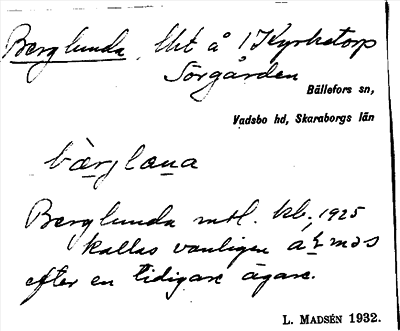 Berglunda, lht å 1 Kyrketorp
Sörgården
Bällefors sn,
Vadsbo hd, Skaraborgs län
bærjlæna
Berglunda mtl. kb. 1925
kallas vanligen
efter en tidigare ägare.
L. MADSÉN 1932.